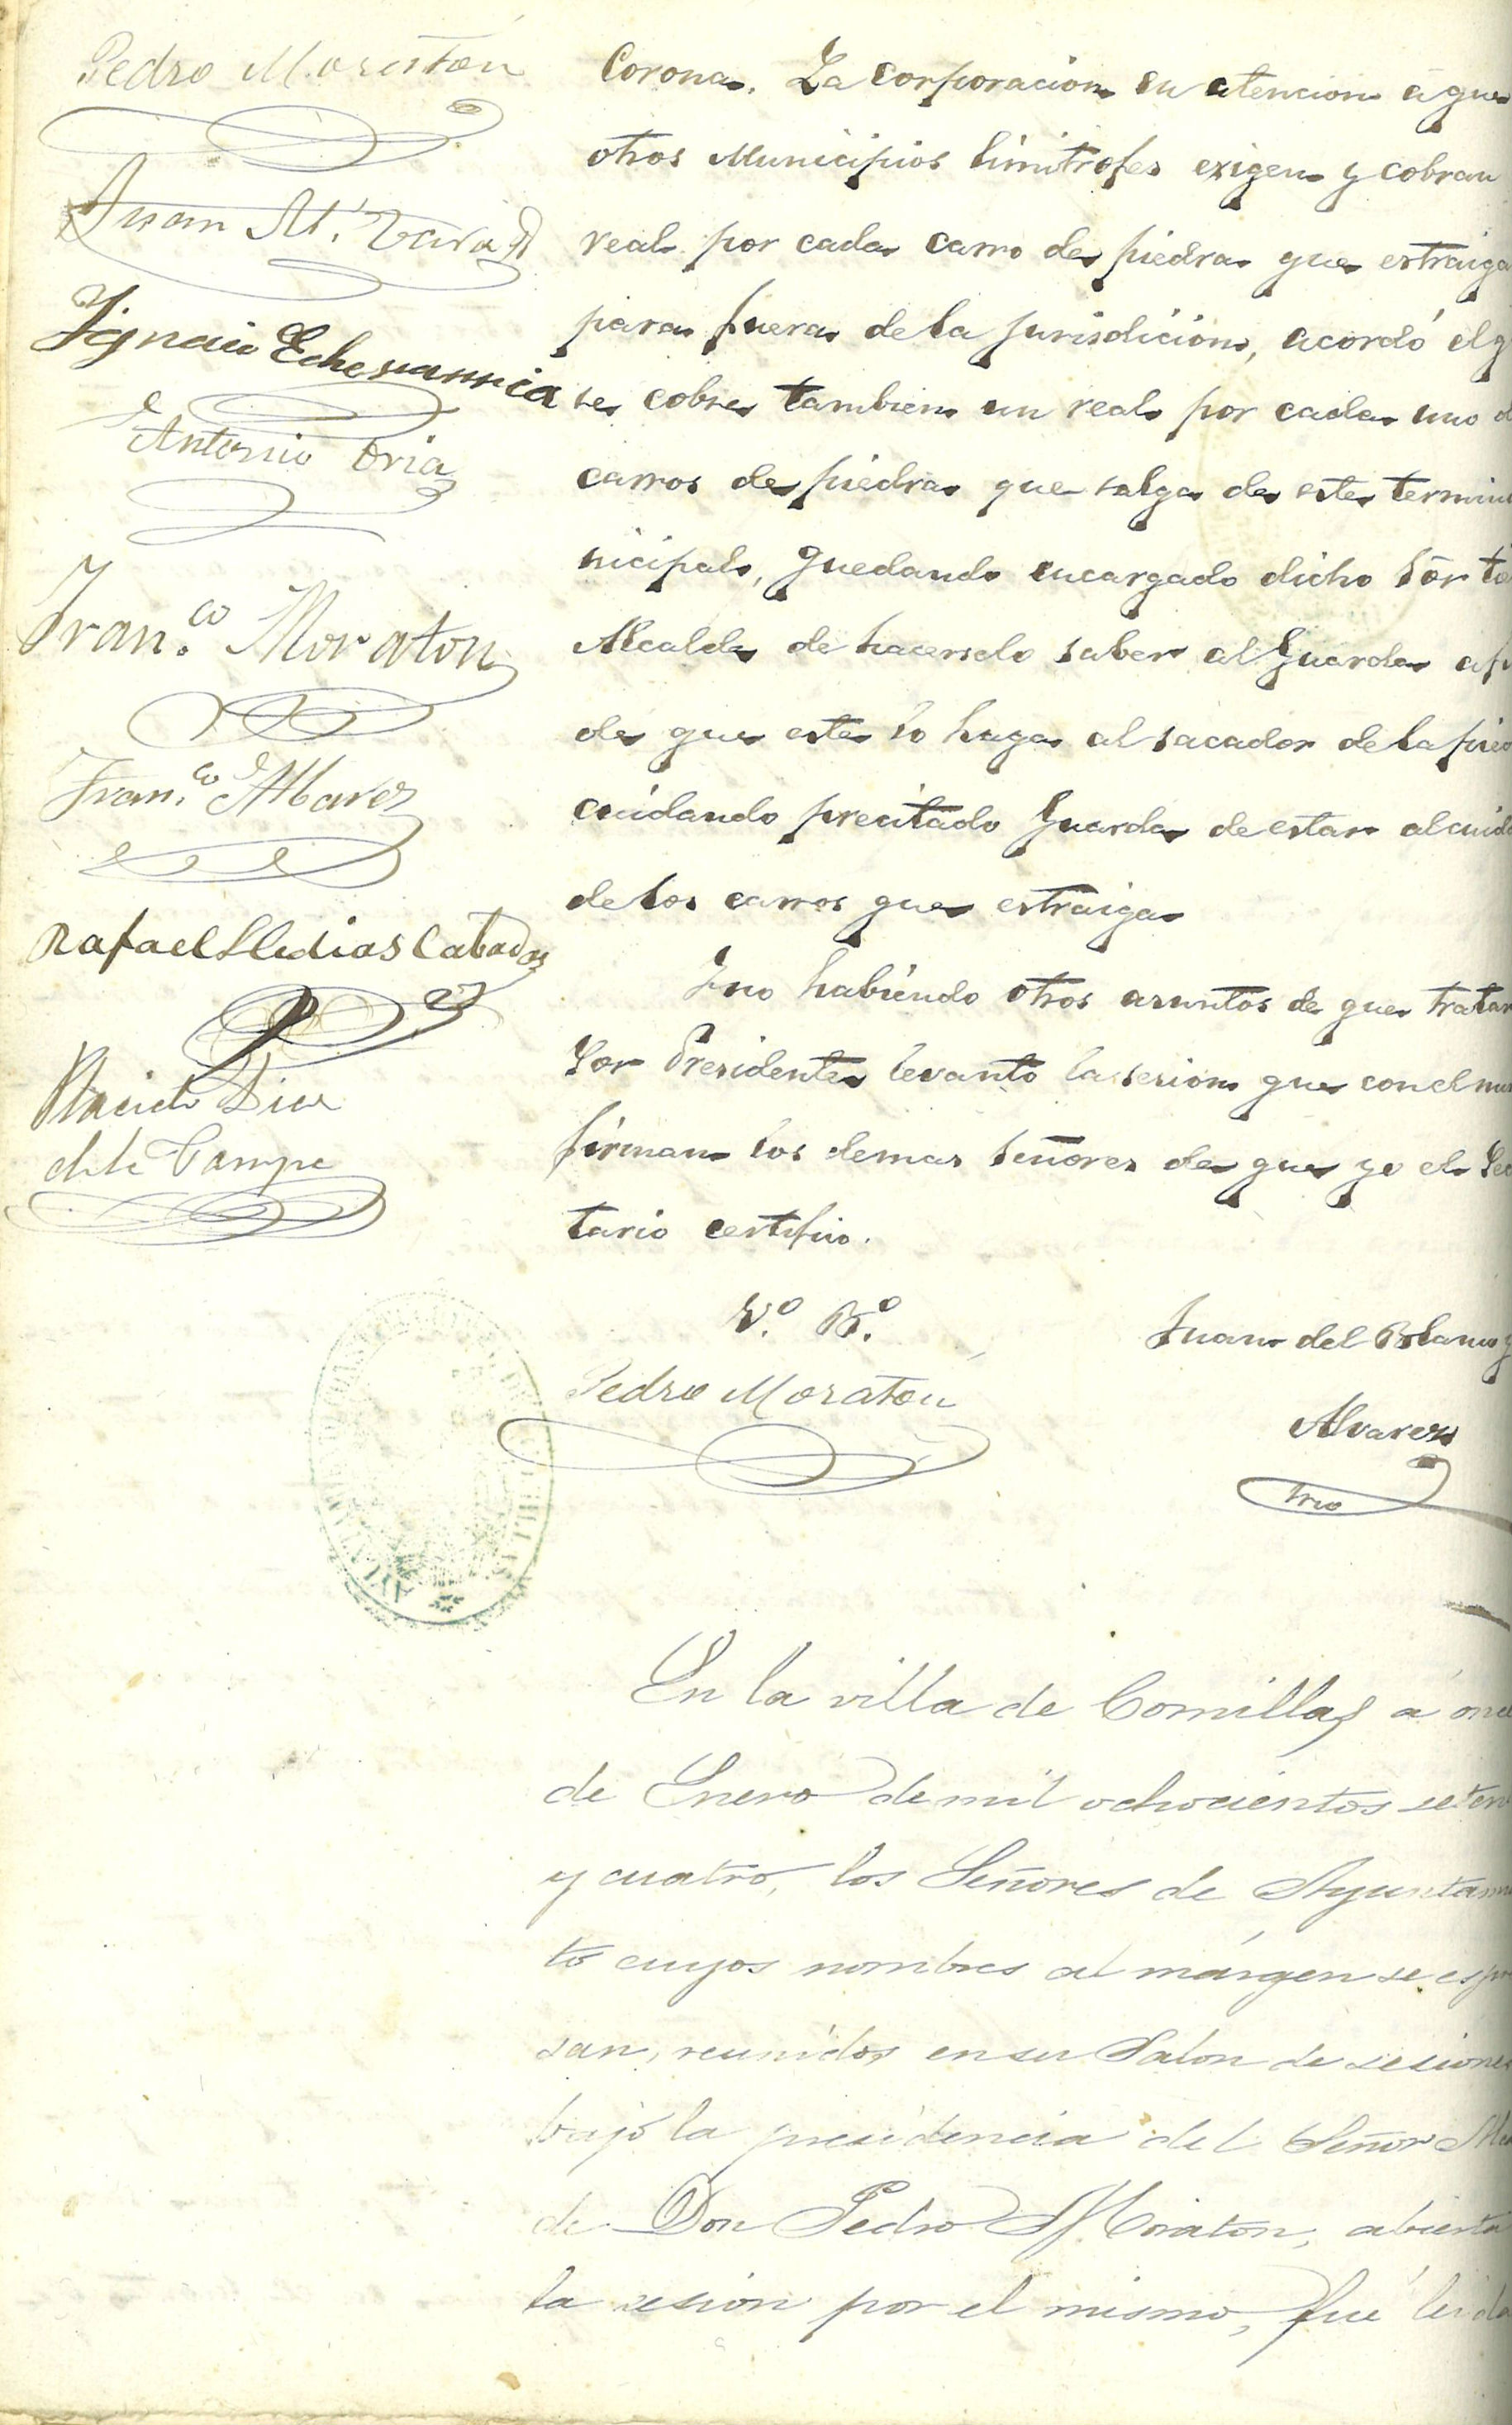 Pedro Moraton
Juan M.
Ignacio Echevarria
Antonio Oria
Fran.co Moraton
Fran.co Alvarez
Rafael Cabadas
Placido Diez
de la Campa
Corona. La corporacion en atencion á que
otros Municipios limitrofes exigen y cobran
real por cada carro de piedra que estraiga
para fuera de la jurisdicion, acordó el q
se cobre tambien un real por cada uno d
carros de piedra que salga de este termin
nicipal, quedando encargado dicho Sor te
Alcalde de hacerselo saber al Guarda a fi
de que este lo haga al sacador de la pied
cuidando precitado Guarda de estar al cuida
de los carros que estraiga
Y no habiendo otros asuntos de que tratar
Sor Presidente levanto la sesion que con el mis
firman los demas Señores de que yo el Sec
tario certifico.
V.o B.o
Pedro Moraton
Juan del Blanco y
Alvarez
Srio
En la villa de Comillas á once
de Enero de mil ochocientos seten
y cuatro, los Señores de Ayuntam
to cuyos nombres al márgen se espre
san, reunidos en su Salon de sesiones
bajo la presidencia del Señor Alcal
de Don Pedro Moraton, abierta
la sesion por el mismo, fué leida